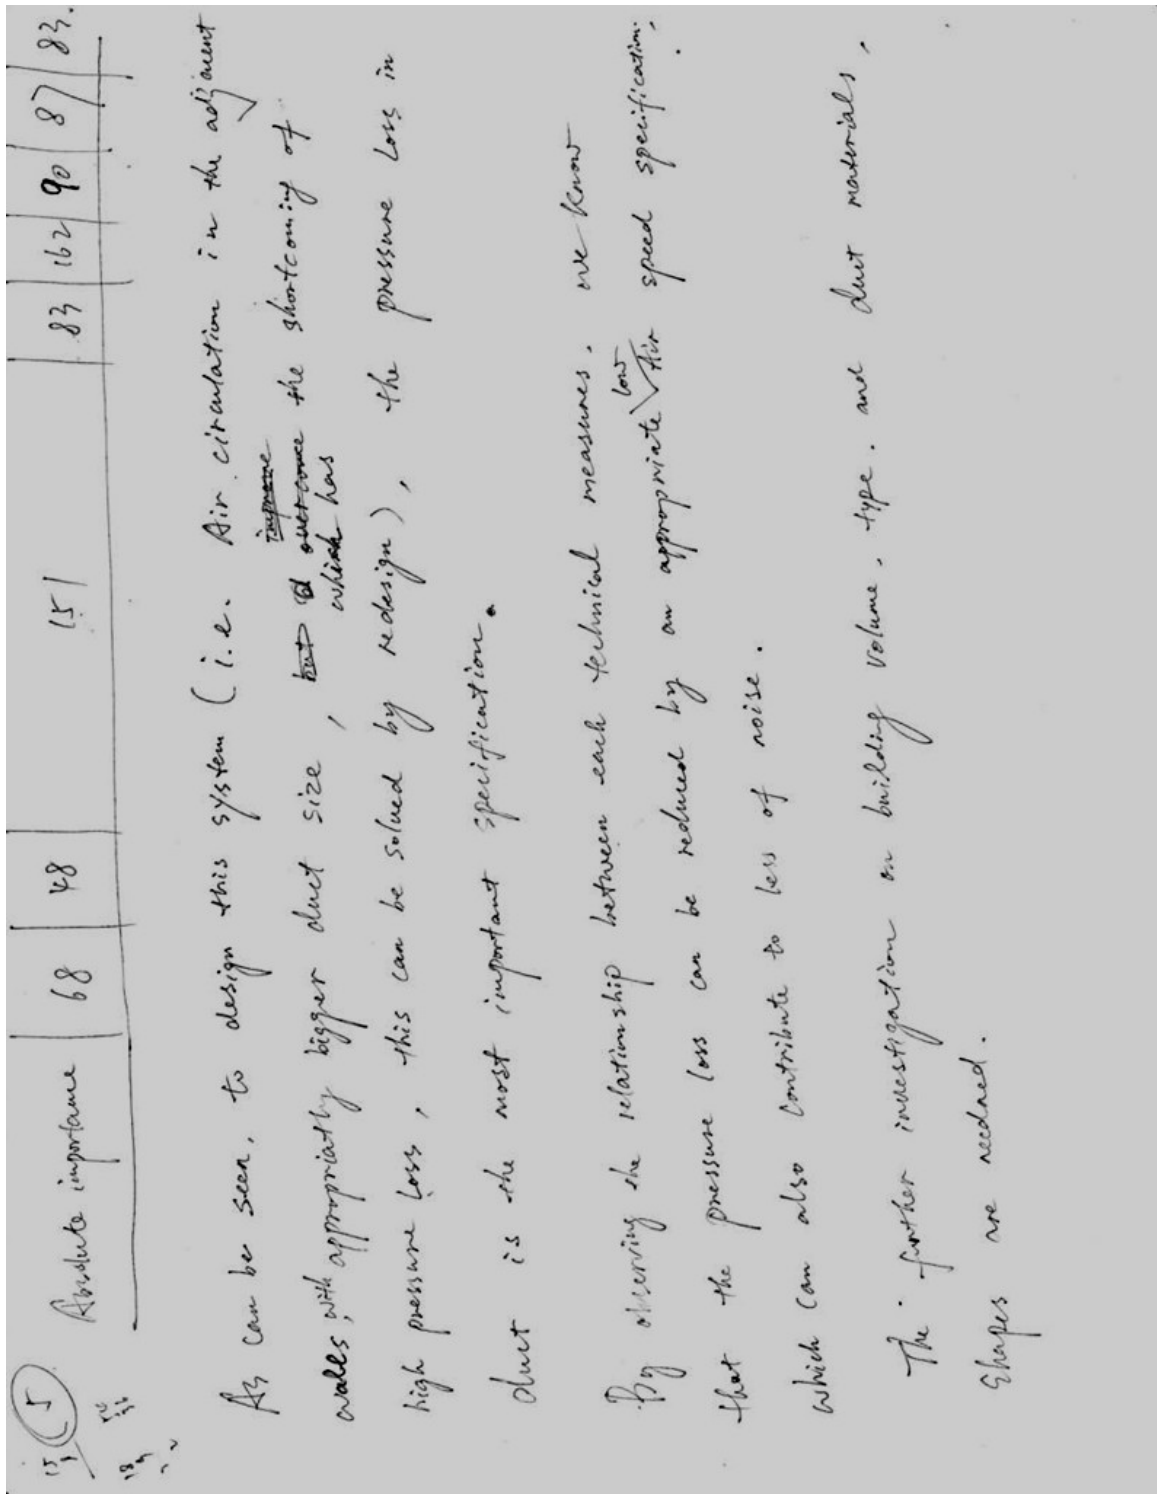 5
Absolute importance | 68 | 48 | 151 | 83 | 162 | 90 | 87 | 83.
As can be seen, to design this system (i.e. Air circulation in the adjacent
walls, with appropriatly bigger duct size, but overcome improve the shortcoming of
which has
high pressure loss, this can be solved by redesign), the pressure loss in
duct is the most important specification.
By observing the relationship between each technical measures, we know
that the pressure loss can be reduced by an appropriate low Air speed specification.
which can also contribute to less of noise.
The further investigation on building volume, type. and duct materials,
Shapes are needned.